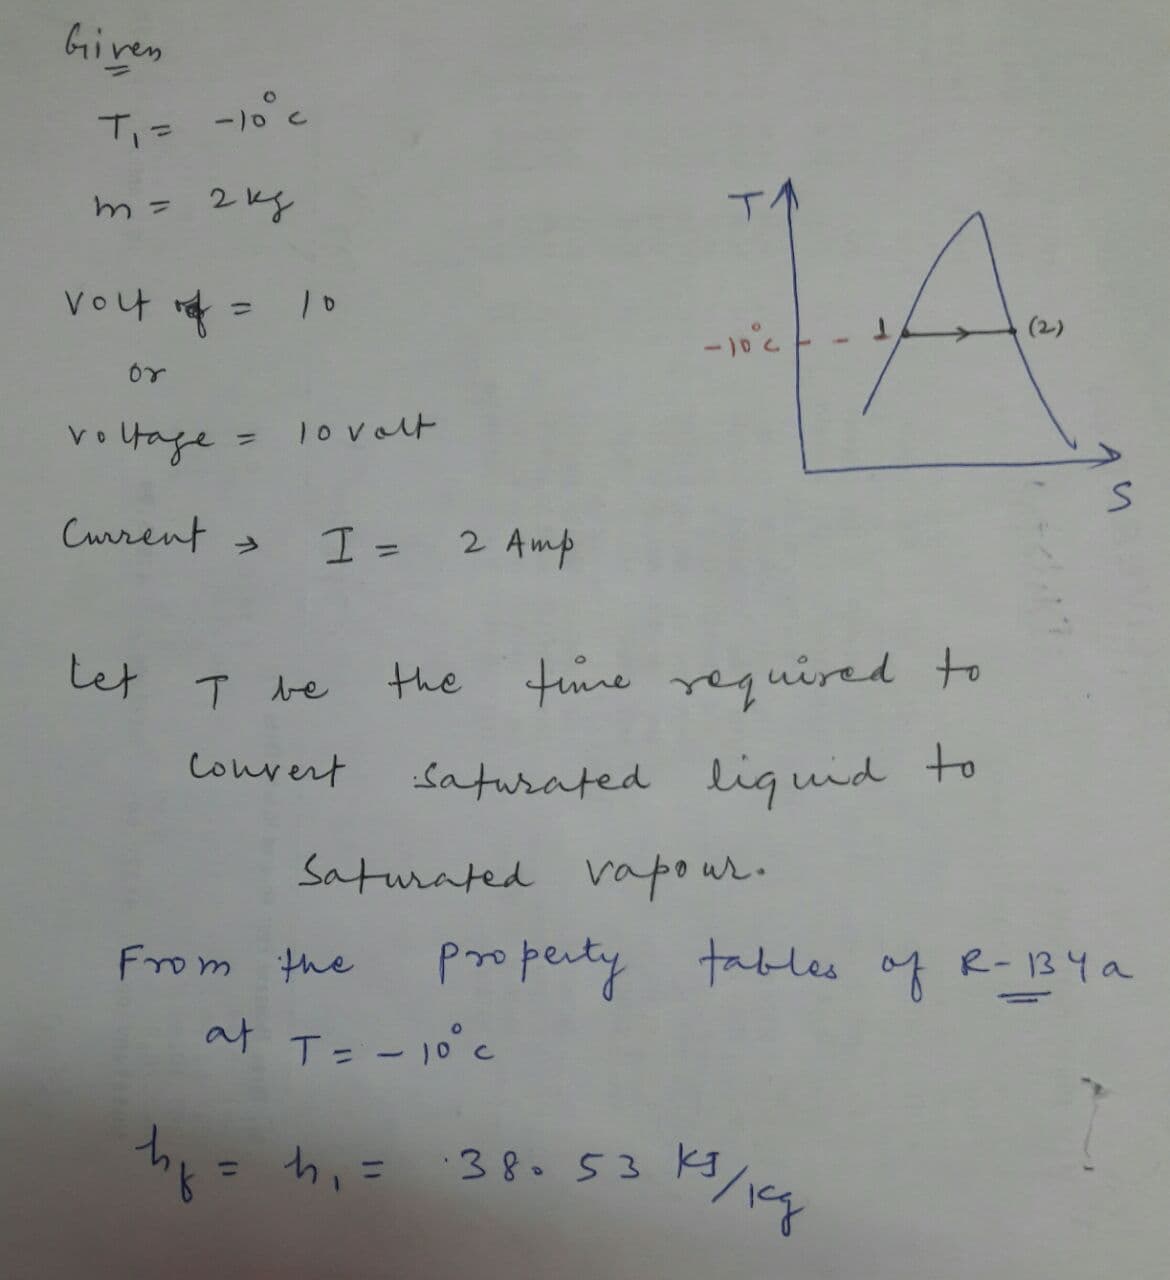 Given
T₁ = -10°c
m = 2 kg
Volt = 10
or
voltage = 10 volt
Current → I = 2 Amp
T
-10°c
1
(2)
S
Let T be the time required to
Convert saturated liquid to
Saturated vapour.
From the property tables of R-134a
at T = -10°c
hf = h₁ = 38.53 kJ/kg